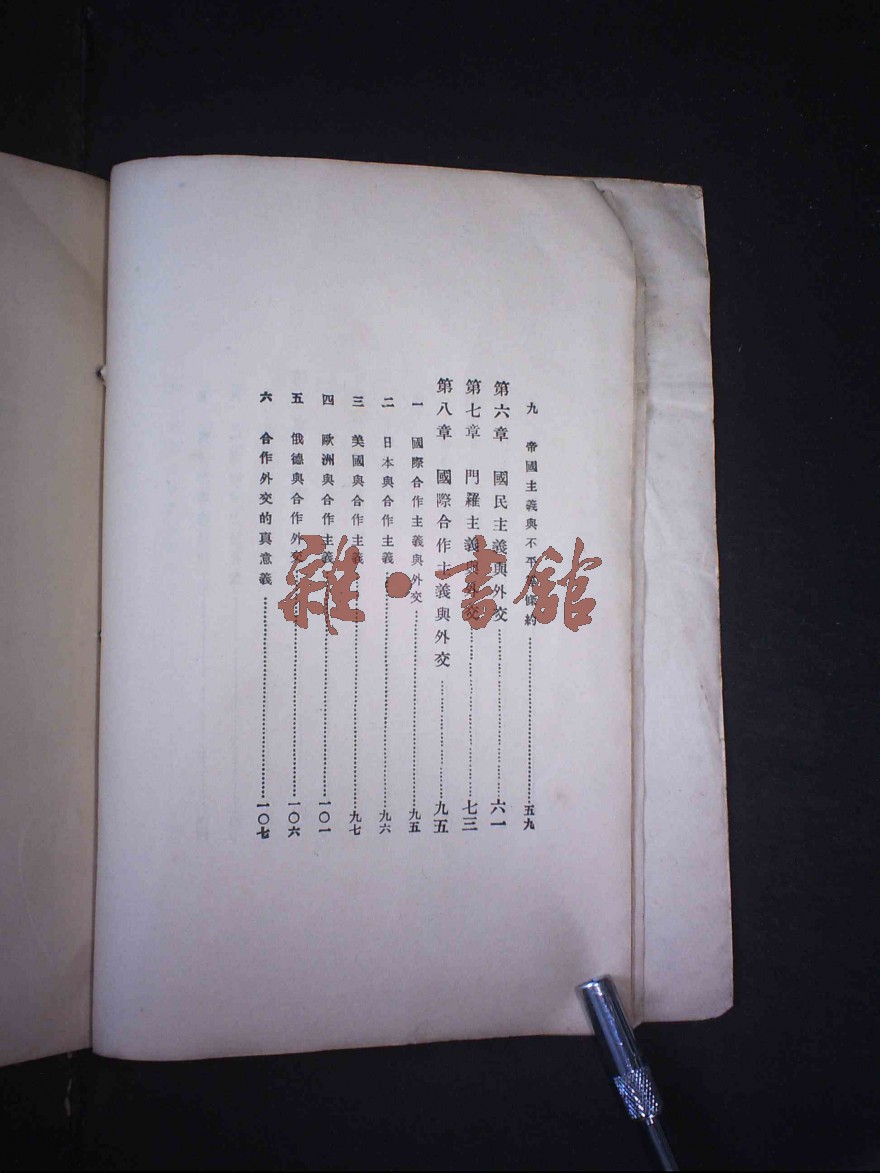 九　帝國主義與不平等條約……五九
第六章　國民主義與外交……六一
第七章　門羅主義與外交……七三
第八章　國際合作主義與外交……九五
一　國際合作主義與外交……九五
二　日本與合作主義……九六
三　美國與合作主義……九七
四　歐洲與合作主義……一〇一
五　俄德與合作外交……一〇六
六　合作外交的真意義……一〇七
雜·書館